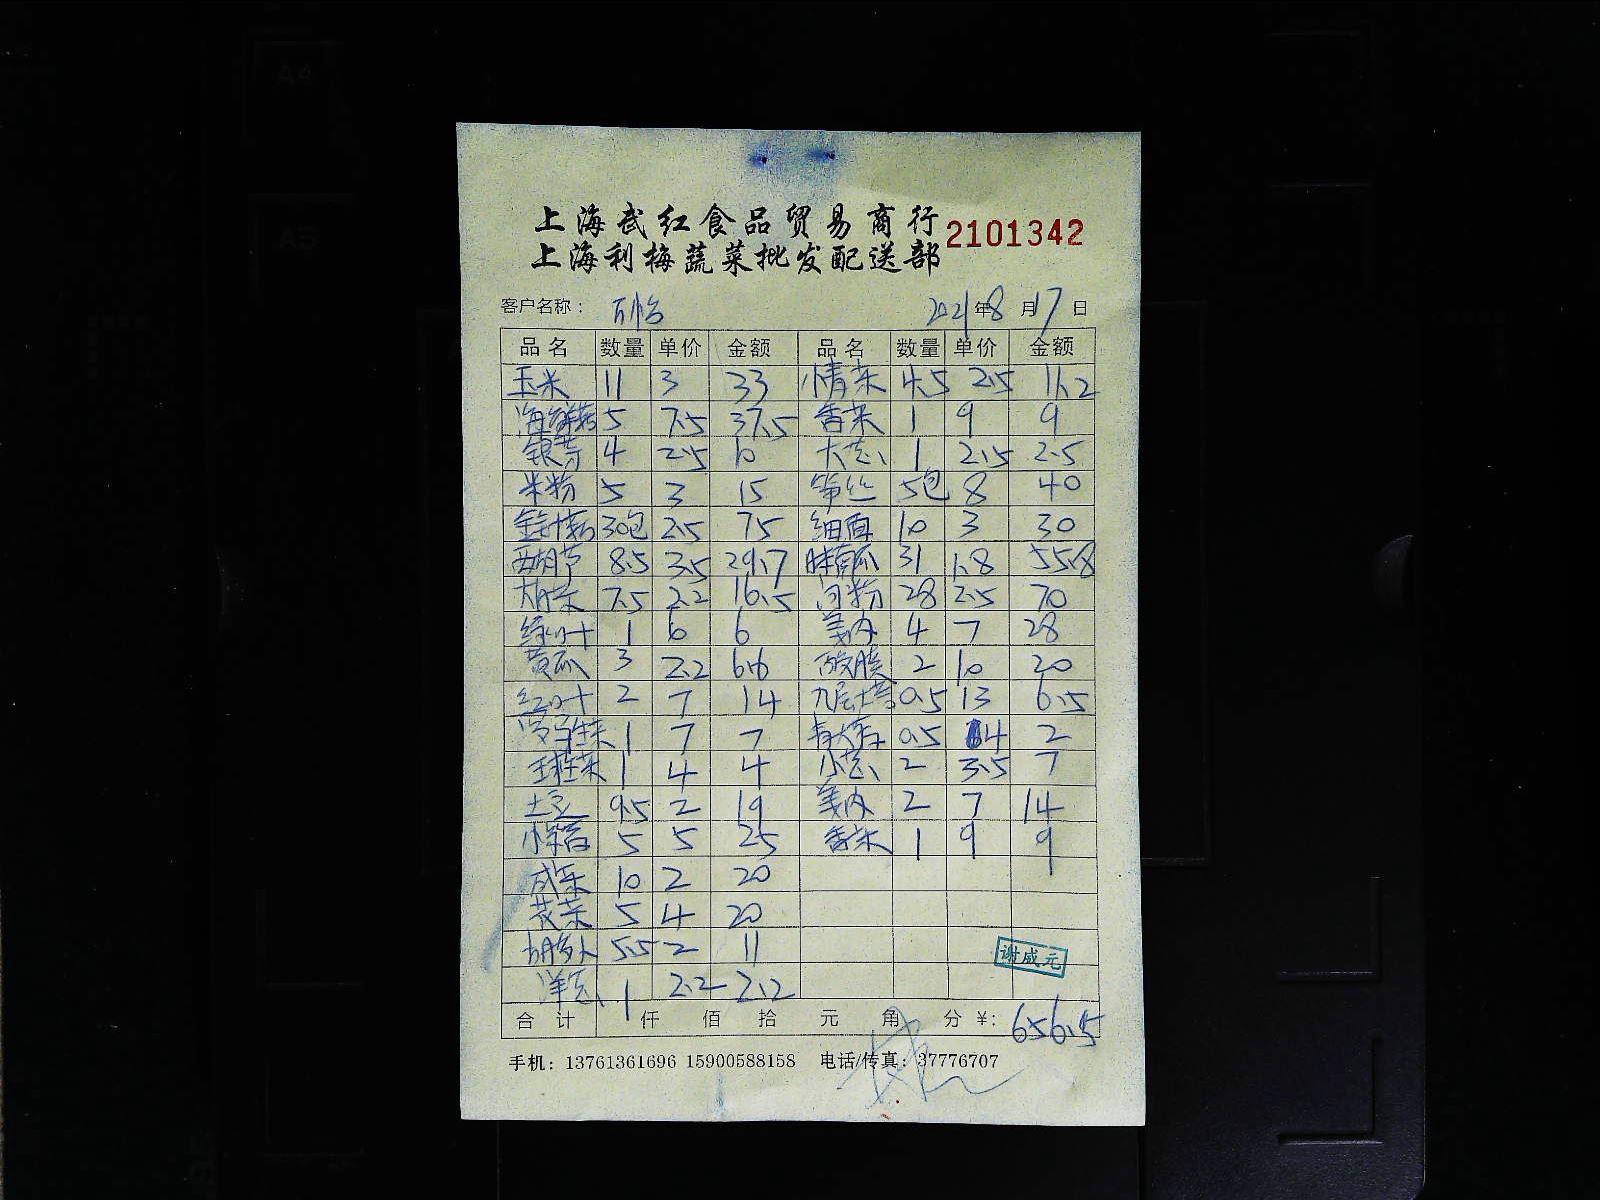 上海武红食品贸易商行
2101342
上海利梅蔬菜批发配送部
客户名称：
2021年8月17日
品名 数量 单价 金额 品名 数量 单价 金额
玉米 11 3 33 4.5 2.5 11.2
海鲜菇 5 7.5 37.5 香菜 1 9 9
银芽 4 2.5 10 大葱 1 2.5 2.5
米粉 5 3 15 笋丝 5包 8 40
金针菇 30包 2.5 75 细面 10 3 30
西胡节 8.5 3.5 29.7 南瓜 31 1.8 55.8
7.5 2.2 16.5 河粉 28 2.5 70
1 6 6 姜肉 4 7 28
黄瓜 3 2.2 6.6 2 10 20
红叶 2 7 14 九层塔 0.5 13 6.5
罗马生菜 1 7 7 0.5 4 2
球生菜 1 4 4 小葱 2 3.5 7
土豆 9.5 2 19 姜肉 2 7 14
5 5 25 香菜 1 9 9
10 2 20
5 4 20
5.5 2 11
洋葱 1 2.2 2.2
谢威元
合计 仟 佰 拾 元 角 分 ￥: 656.5
手机：13761361696 15900588158 电话/传真：37776707